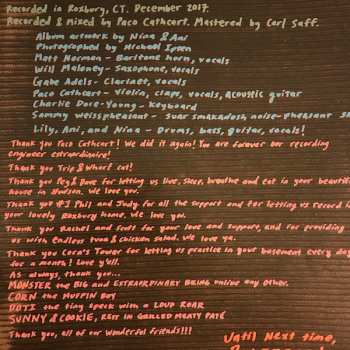 Recorded in Roxbury, CT. December 2017.
Recorded & mixed by Paco Cathcart. Mastered by Carl Saff.
Album artwork by Nina & Ani
Photographed by Michael
Matt Norman - Baritone horn, vocals
Will Maloney - Saxophone, vocals
Gabe Adels - Clarinet, vocals
Paco Cathcart - Violin, claps, vocals, acoustic guitar
Charlie Dore-Young - Keyboard
Sammy Weisspheasant -
Lily, Ani, and Nina - Drums, bass, guitar, vocals!
Thank you Paco Cathcart! We did it again! You are forever our recording
engineer extraordinaire!
Thank you Trip & Whart cat!
Thank you Peg & Dave for letting us live, sleep, breathe and eat in your beautiful
house in Hudson. We love you.
Thank you Phil and Judy for all the support and for letting us record in
your lovely Roxbury home. We love you.
Thank you Rachel and Scott for your love and support, and for providing
us with endless tuna & chicken salad. We love ya.
Thank you Cora's Tower for letting us practice in your basement every day
for a month! Love y'all.
As always, thank you...
MONSTER the BIG and EXTRAORDINARY BEING unlike any other.
CORN the MUFFIN BOY
DOTI the tiny speck with a LOUD ROAR
SUNNY & COOKIE, REST IN GRILLED MEATY PATÉ
Thank you, all of our wonderful friends!!!
Until next time,